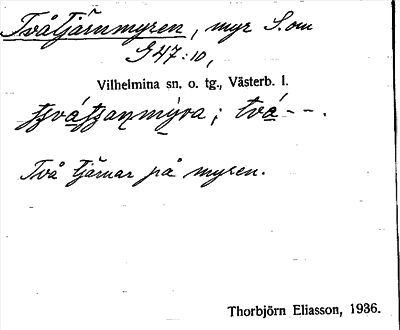 Tvåtjärnmyren, myr S.om
G 47:10,
Vilhelmina sn. o. tg., Västerb. l.
två--.
Två tjärnar på myren.
Thorbjörn Eliasson, 1936.